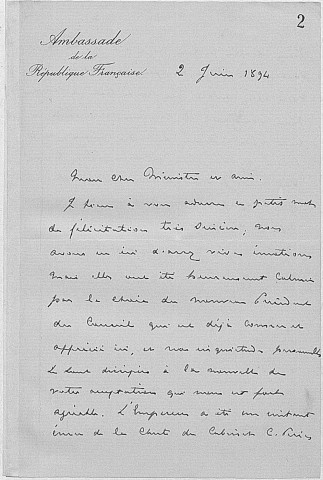 2
Ambassade
de la
République Française
2 Juin 1894
Mon cher Ministre et ami.
Je tiens à vous adresser ce petit mot
de félicitations très sincères, nous
avons eu ici d'assez vives émotions
mais elles ont été heureusement calmées
par le choix du nouveau Président
du Conseil qui est déjà connu et
apprécié ici, et nos inquiétudes
se sont dissipées à la nouvelle de
votre acceptation qui nous est fort
agréable. L'Empereur a été un instant
ému de la chute du Cabinet C. Périer